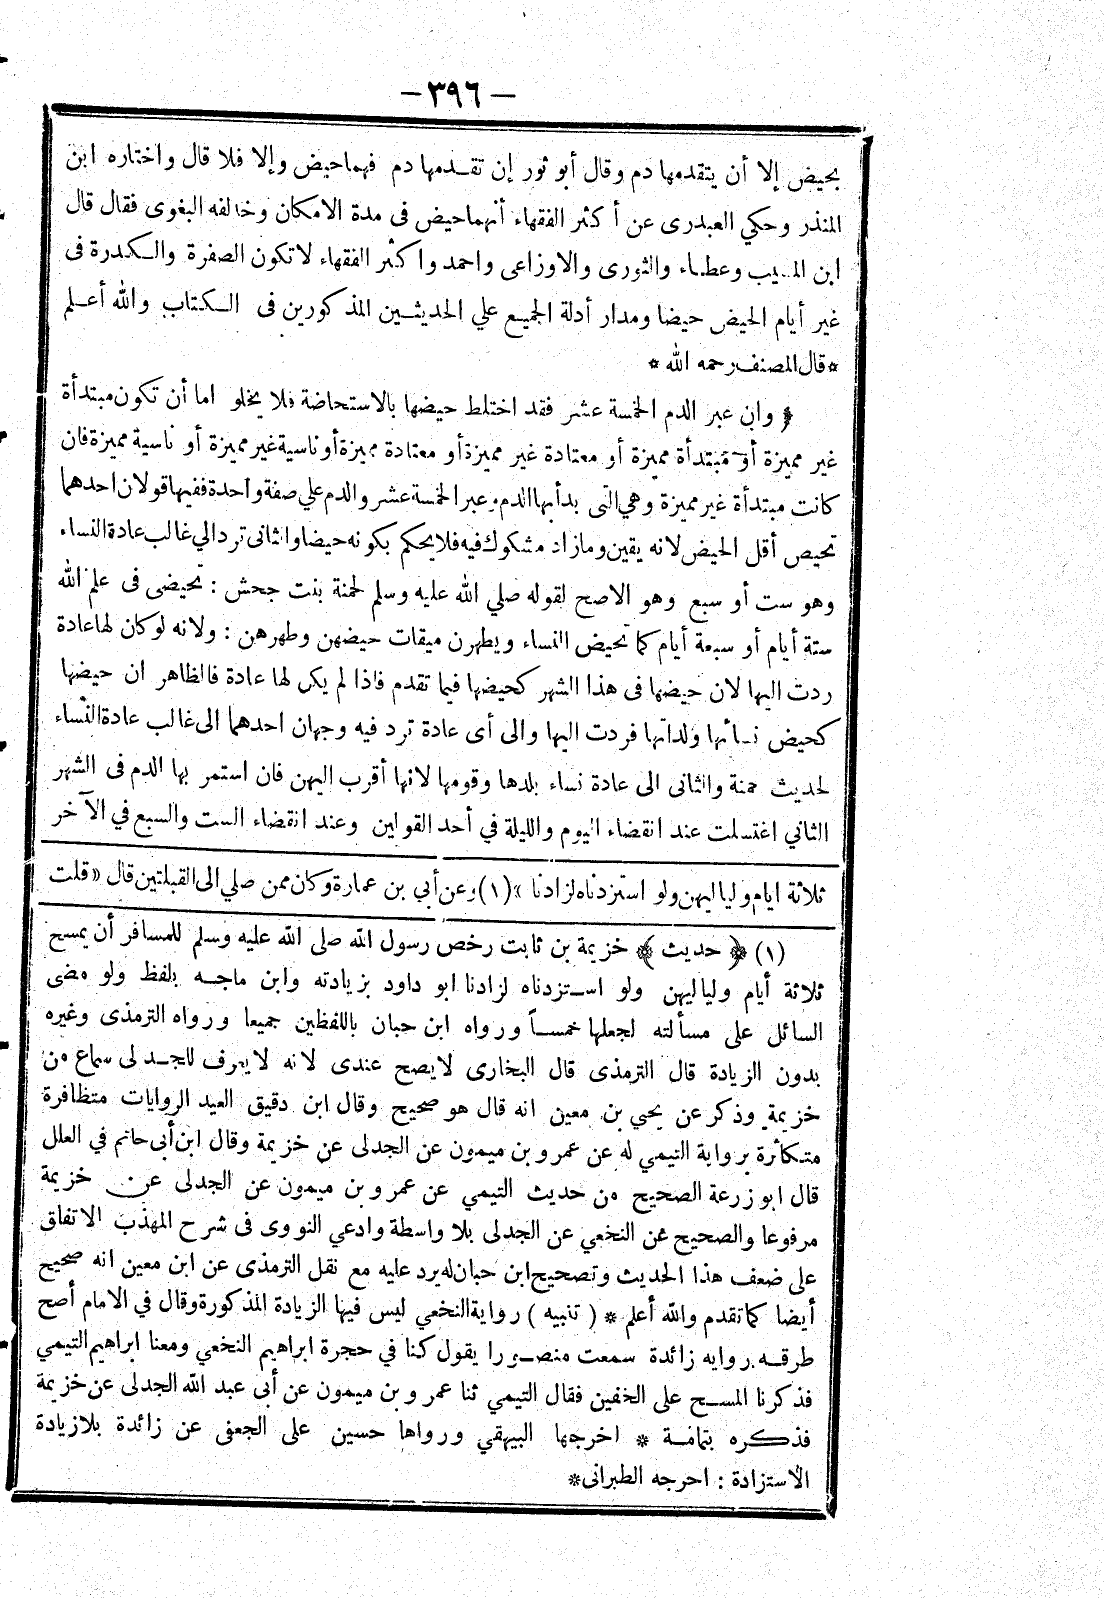 — ٣٩٦ —
بحيض إلا أن يتقدمها دم وقال أبو ثور إن تقدمها دم فهما حيض وإلا فلا قال واختاره ابن
المنذر وحكي العبدرى عن أكثر الفقهاء أنهما حيض فى مدة الامكان وخالفه البغوى فقال قال
ابن المسيب وعطاء والثورى والاوزاعى واحمد واكثر الفقهاء لا تكون الصفرة والكدرة فى
غير أيام الحيض حيضا ومدار أدلة الجميع علي الحديثين المذكورين فى الكتاب والله أعلم
* قال المصنف رحمه الله *
﴿ وان عبر الدم الخمسة عشر فقد اختلط حيضها بالاستحاضة فلا يخلو اما أن تكون مبتدأة
غير مميزة أو مبتدأة مميزة أو معتادة غير مميزة أو معتادة مميزة أو ناسية غير مميزة أو ناسية مميزة فان
كانت مبتدأة غير مميزة وهي التى بدأ بها الدم وعبر الخمسة عشر والدم علي صفة واحدة ففيها قولان احدهما
تحيض أقل الحيض لانه يقين وما زاد مشكوك فيه فلا يحكم بكونه حيضا والثانى ترد الي غالب عادة النساء
وهو ست أو سبع وهو الاصح لقوله صلي الله عليه وسلم لحمنة بنت جحش : تحيضى فى علم الله
ستة أيام أو سبعة أيام كما تحيض النساء ويطهرن ميقات حيضهن وطهرهن : ولانه لو كان لها عادة
ردت اليها لان حيضها فى هذا الشهر كحيضها فيما تقدم فاذا لم يكن لها عادة فالظاهر ان حيضها
كحيض نسائها ولداتها فردت اليها والى أى عادة ترد فيه وجهان احدهما الى غالب عادة النساء
لحديث حمنة والثانى الى عادة نساء بلدها وقومها لانها أقرب اليهن فان استمر بها الدم فى الشهر
الثاني اغتسلت عند انقضاء اليوم والليلة في أحد القولين وعند انقضاء الست والسبع في الآخر
ثلاثة ايام ولياليهن ولو استزدناه لزادنا » (١) وعن أبي بن عمارة وكان ممن صلي الى القبلتين قال « قلت
(١) ﴿ حديث ﴾ خزيمة بن ثابت رخص رسول الله صلى الله عليه وسلم للمسافر أن يمسح
ثلاثة أيام ولياليهن ولو استزدناه لزادنا ابو داود بزيادته وابن ماجه بلفظ ولو مضى
السائل على مسألته لجعلها خمساً ورواه ابن حبان باللفظين جميعا ورواه الترمذى وغيره
بدون الزيادة قال الترمذى قال البخارى لا يصح عندى لانه لا يعرف للجدلى سماع من
خزيمة وذكر عن يحيي بن معين انه قال هو صحيح وقال ابن دقيق العيد الروايات متظافرة
متكاثرة برواية التيمي له عن عمرو بن ميمون عن الجدلى عن خزيمة وقال ابن أبى حاتم في العلل
قال ابو زرعة الصحيح من حديث التيمي عن عمرو بن ميمون عن الجدلى عن خزيمة
مرفوعا والصحيح عن النخعي عن الجدلى بلا واسطة وادعي النووى فى شرح المهذب الاتفاق
على ضعف هذا الحديث وتصحيح ابن حبان له يرد عليه مع نقل الترمذى عن ابن معين انه صحيح
أيضا كما تقدم والله أعلم * ( تنبيه ) رواية النخعي ليس فيها الزيادة المذكورة وقال في الامام أصح
طرقه روايه زائدة سمعت منصورا يقول كنا في حجرة ابراهيم النخعي ومعنا ابراهيم التيمي
فذكرنا المسح على الخفين فقال التيمي ثنا عمرو بن ميمون عن أبى عبد الله الجدلى عن خزيمة
فذكره بتمامة * اخرجها البيهقي ورواها حسين على الجعفى عن زائدة بلا زيادة
الاستزادة : اخرجه الطبرانى *